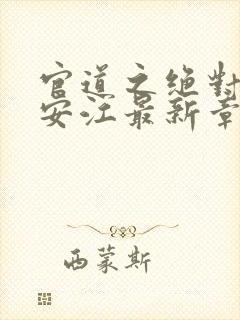 官道之绝對
安江最新章
西蒙斯